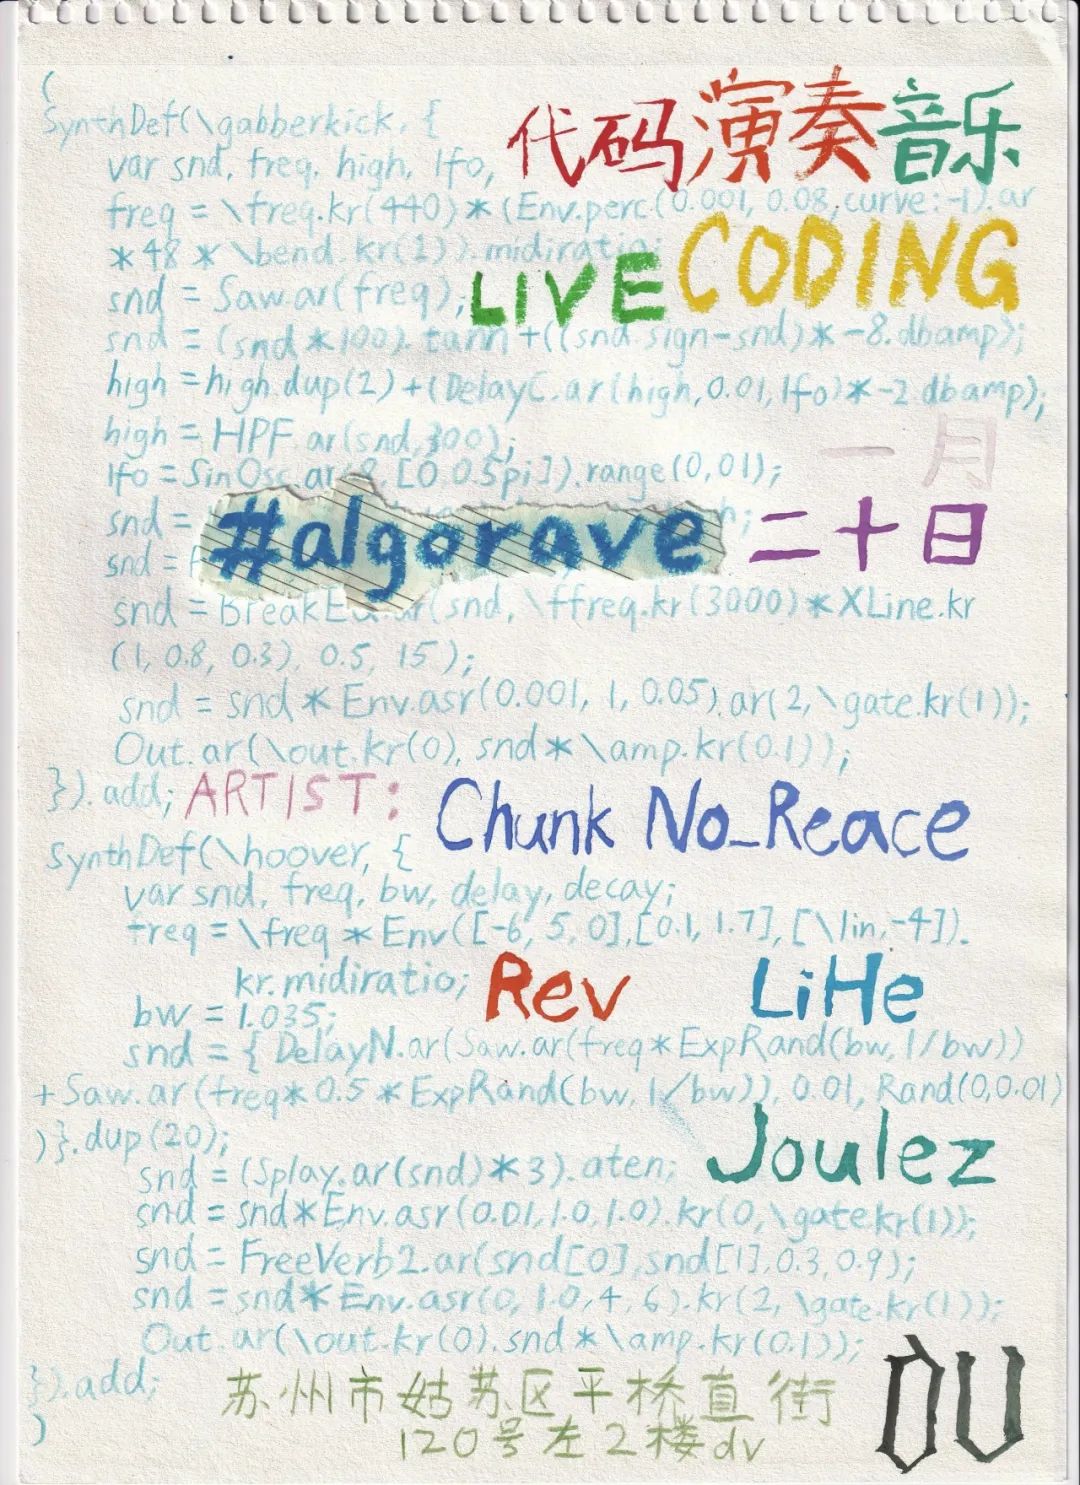 (
SynthDef(\gabberkick, {
代码演奏音乐
var snd, freq, high, lfo,
freq = \freq.kr(440)*(Env.perc(0.001, 0.08,curve:-1).ar
*48 * \bend.kr(1)).midiratio;
LIVE CODING
snd = Saw.ar(freq);
snd = (snd*100).tanh+((snd.sign-snd)*-8.dbamp);
high = high.dup(2)+(DelayC.ar(high,0.01,lfo)*-2.dbamp);
high = HPF.ar(snd,300);
一月
lfo = SinOsc.ar(8,[0 0.5pi]).range(0,01);
snd =
#algorave
二十日
snd =
snd = BreakE ar(snd, \ffreq.kr(3000)*XLine.kr
(1, 0.8, 0.3), 0.5, 15);
snd = snd*Env.asr(0.001, 1, 0.05).ar(2,\gate.kr(1));
Out.ar(\out.kr(0), snd*\amp.kr(0.1));
}).add;
ARTIST: Chunk No_Reace
SynthDef(\hoover, {
var snd, freq, bw, delay, decay;
freq = \freq * Env([-6, 5, 0],[0.1, 1.7],[\lin,-4]).
kr.midiratio;
Rev LiHe
bw = 1.035;
snd = { DelayN.ar(Saw.ar(freq*ExpRand(bw,1/bw))
+Saw.ar(freq*0.5*ExpRand(bw,1/bw)), 0.01, Rand(0,0.01)
)}.dup(20);
Joulez
snd = (Splay.ar(snd)*3).aten;
snd = snd*Env.asr(0.01,1.0,1.0).kr(0,\gate.kr(1));
snd = FreeVerb2.ar(snd[0],snd[1],0.3,0.9);
snd = snd*Env.asr(0, 1.0,4,6).kr(2, \gate.kr(1));
Out.ar(\out.kr(0).snd*\amp.kr(0.1));
}).add;
)
苏州市姑苏区平桥直街
120号左2楼dv
DV